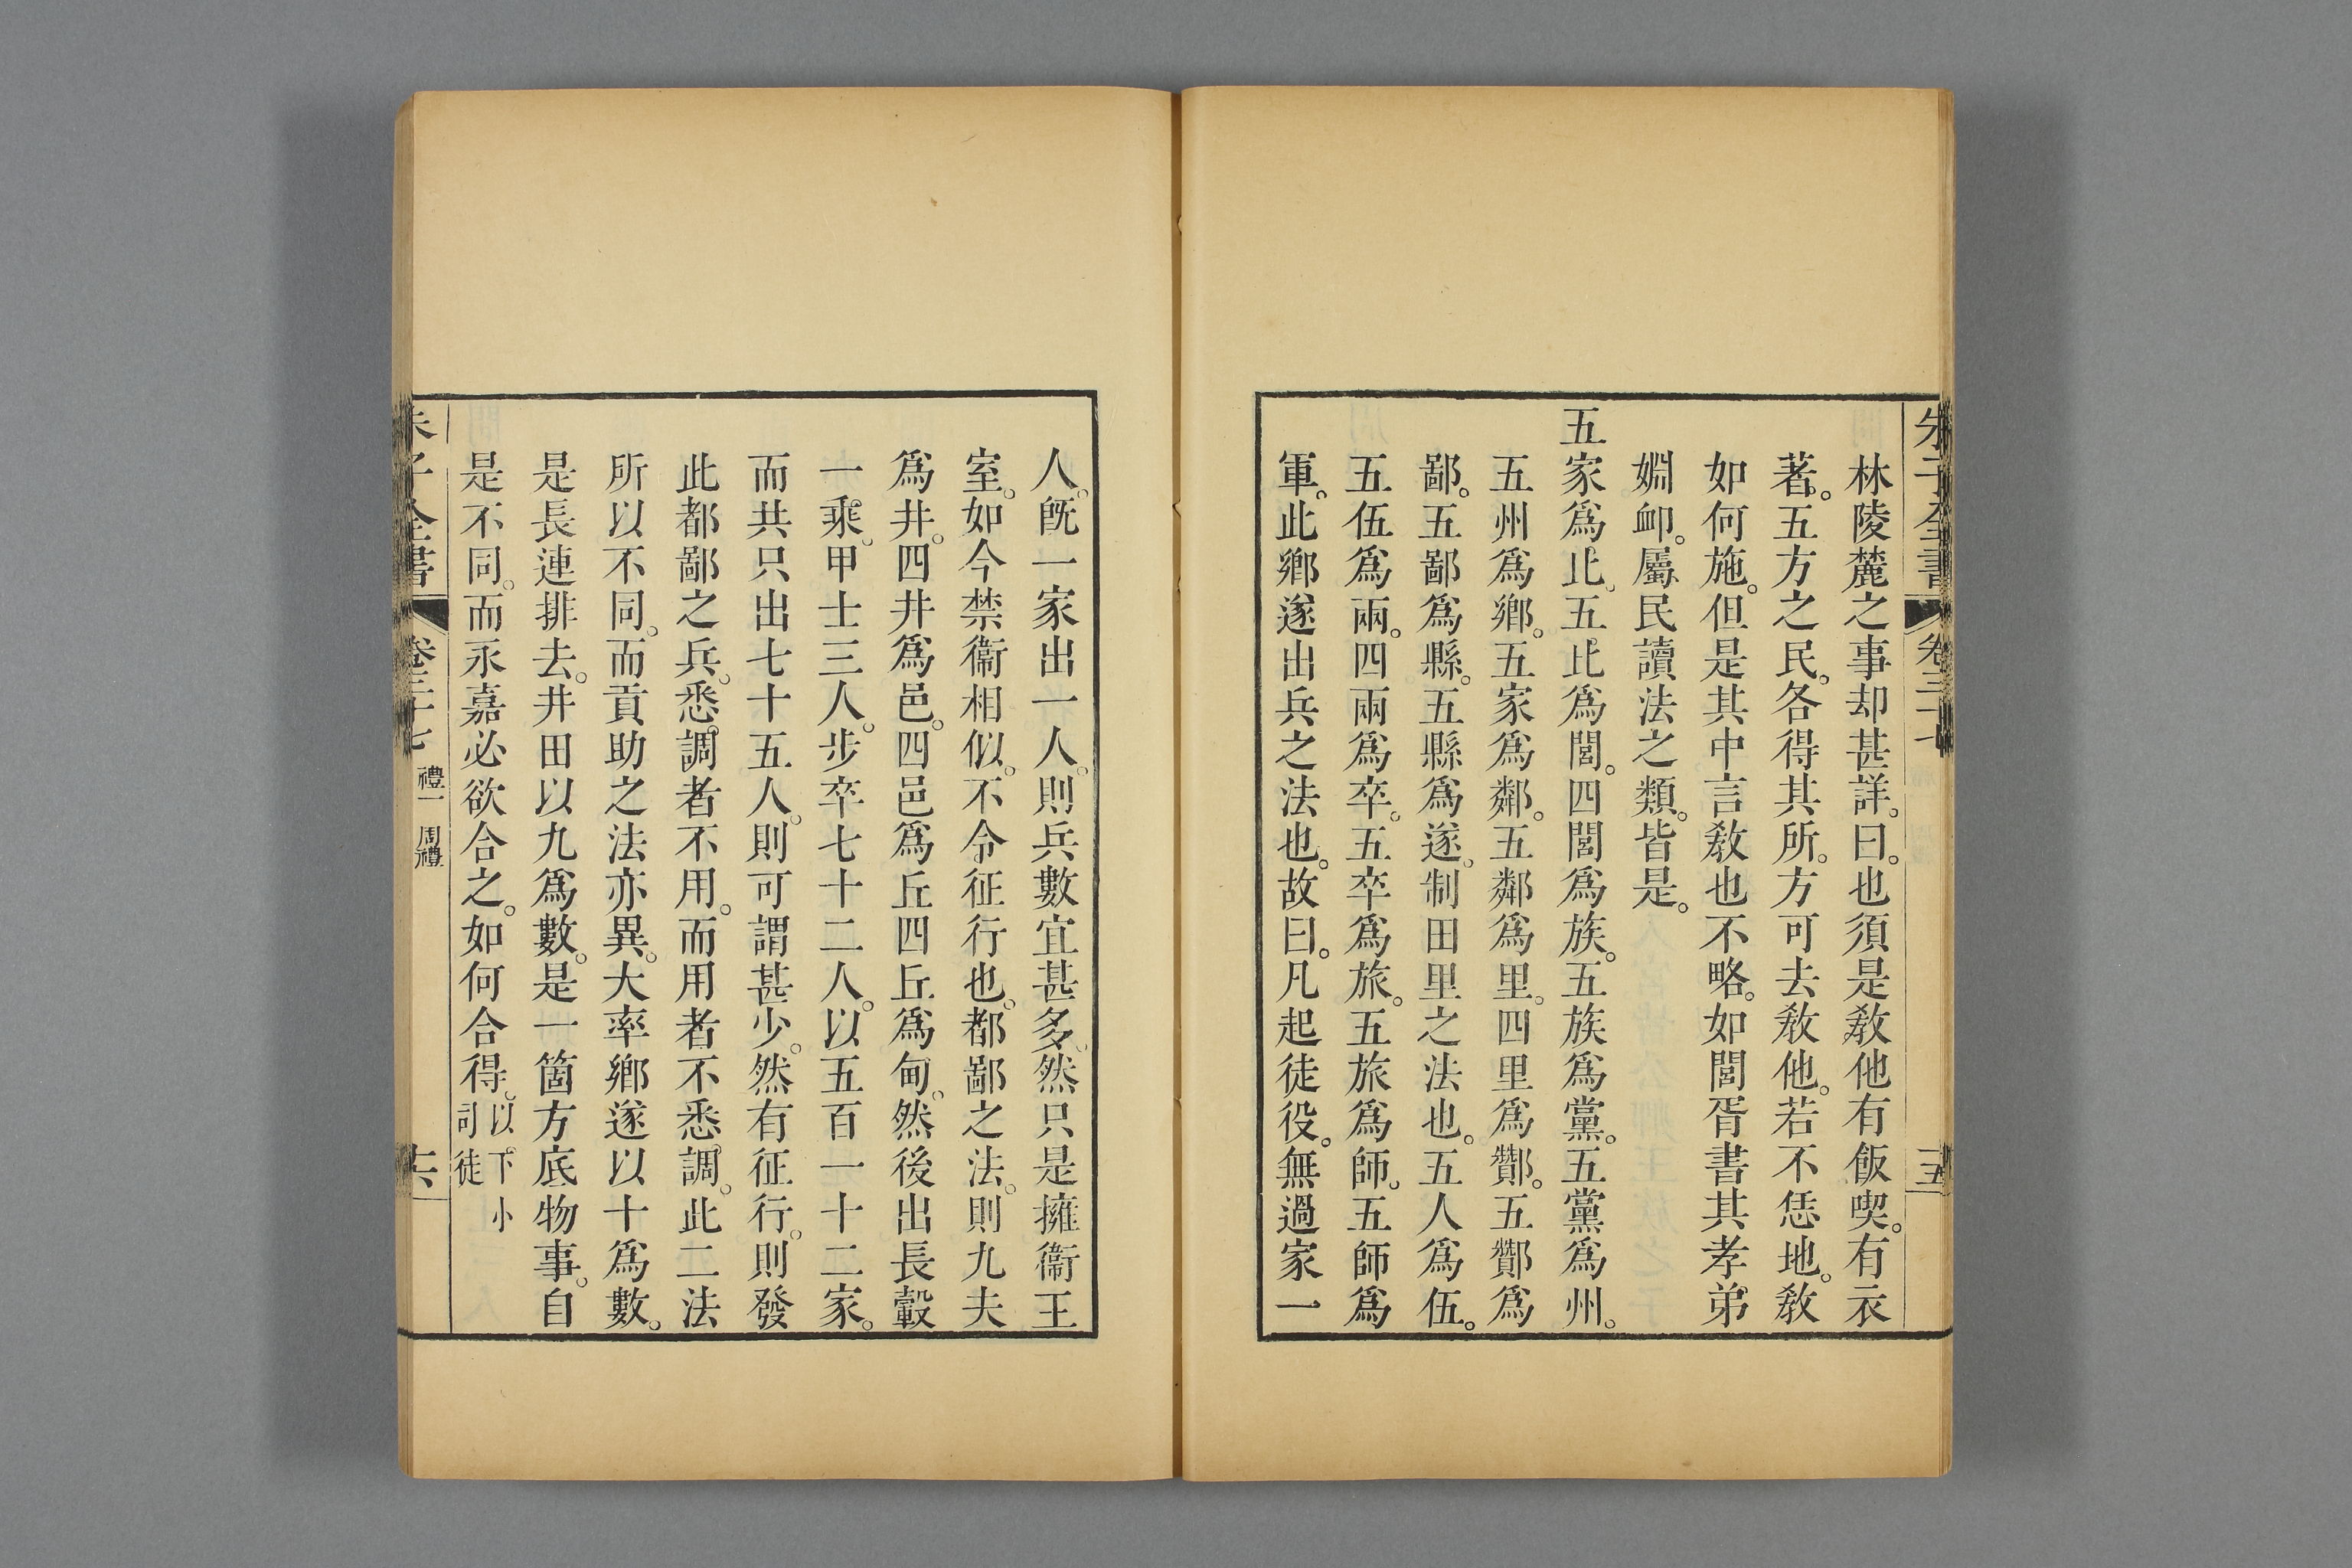 林陵麓之事却甚詳。曰。也須是敎他有飯喫。有衣
著。五方之民。各得其所。方可去敎他。若不恁地。敎
如何施。但是其中言敎也不略。如閭胥書其孝弟
婣卹。屬民讀法之類。皆是。
五家爲比。五比爲閭。四閭爲族。五族爲黨。五黨爲州。
五州爲鄕。五家爲鄰。五鄰爲里。四里爲酇。五酇爲
鄙。五鄙爲縣。五縣爲遂。制田里之法也。五人爲伍。
五伍爲兩。四兩爲卒。五卒爲旅。五旅爲師。五師爲
軍。此鄕遂出兵之法也。故曰。凡起徒役。無過家一
人。旣一家出一人。則兵數宜甚多。然只是擁衞王
室。如今禁衞相似。不令征行也。都鄙之法。則九夫
爲井。四井爲邑。四邑爲丘四丘爲甸。然後出長轂
一乘。甲士三人。步卒七十二人。以五百一十二家。
而共只出七十五人。則可謂甚少。然有征行。則發
此都鄙之兵。悉調者不用。而用者不悉調。此二法
所以不同。而貢助之法亦異。大率鄕遂以十爲數。
是長連排去。井田以九爲數。是一箇方底物事。自
是不同。而永嘉必欲合之。如何合得。以下小司徒
朱子全書 卷三十七 禮一 周禮 十六